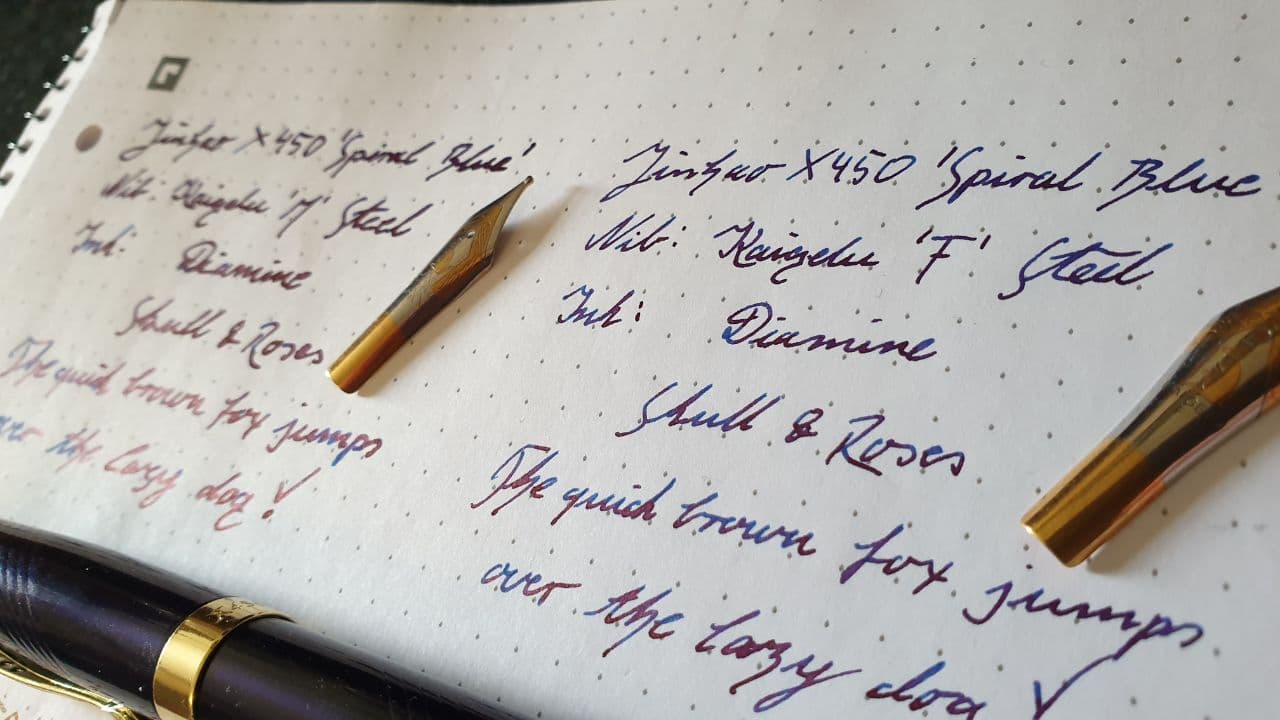 Jinhao X450 'Spiral Blue'
Nib: Kaigelu 'M' Steel
Ink: Diamine
Skull & Roses
The quick brown fox jumps
over the lazy dog!
Jinhao X450 'Spiral Blue
Nib: Kaigelu 'F' Steel
Ink: Diamine
Skull & Roses
The quick brown fox jumps
over the lazy dog!